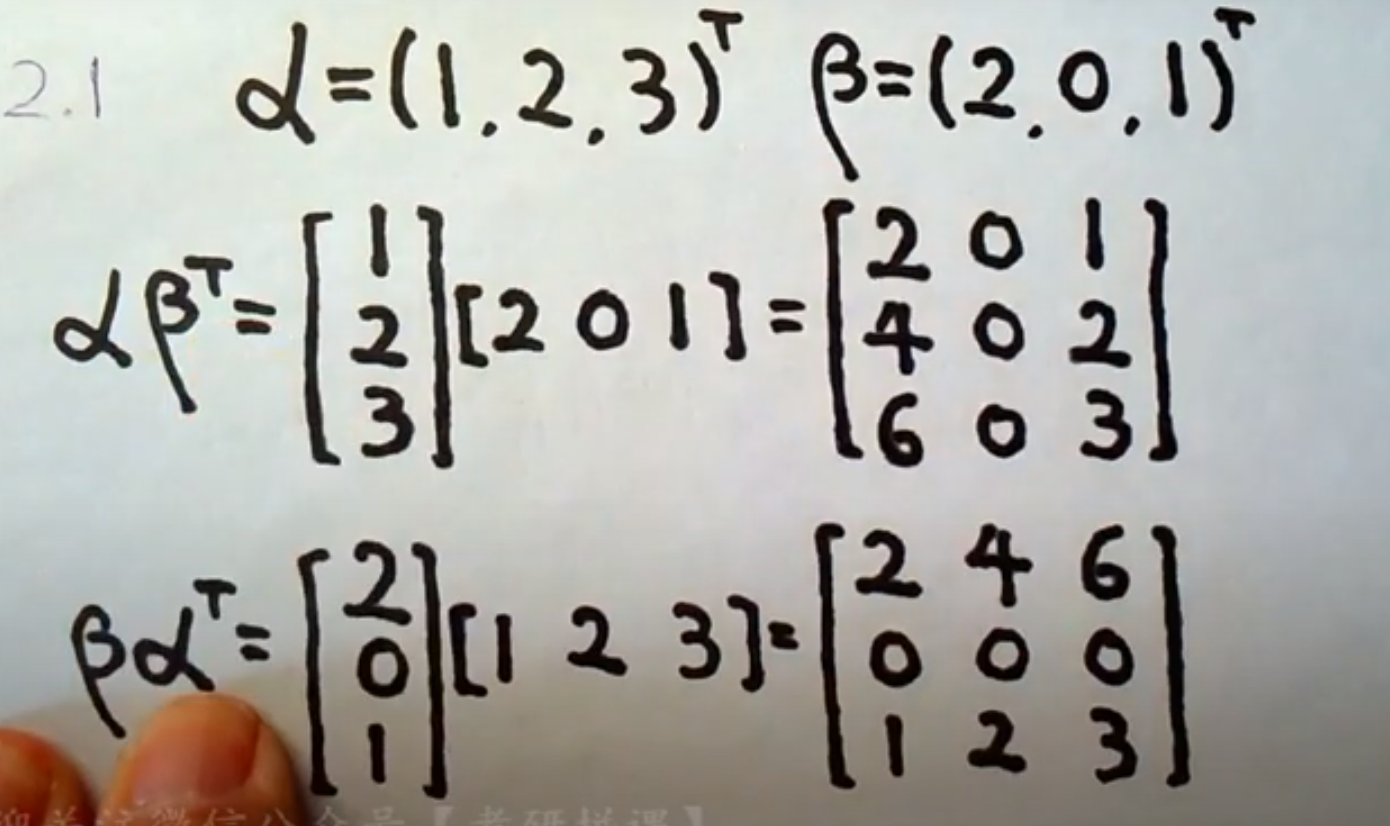 2.1 α=(1,2,3)ᵀ β=(2,0,1)ᵀ
αβᵀ=[1 2 3][2 0 1]=[2 0 1
4 0 2
6 0 3]
βαᵀ=[2 0 1][1 2 3]=[2 4 6
0 0 0
1 2 3]
关注微信公众号【考研拼课】